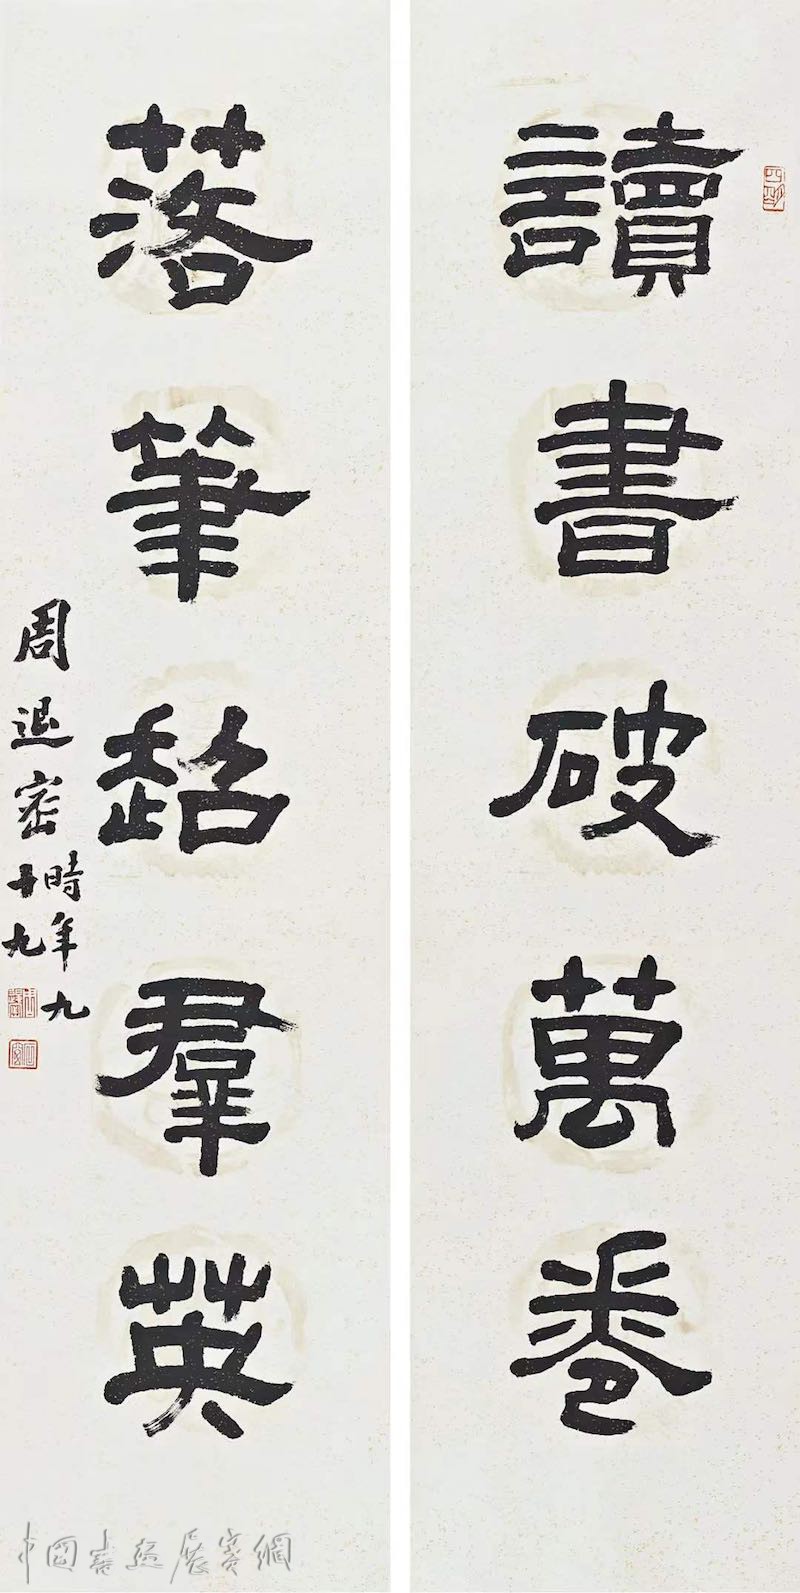 讀書破萬卷
落筆超羣英
周退密時年九十九
四明
中國書画展賽網